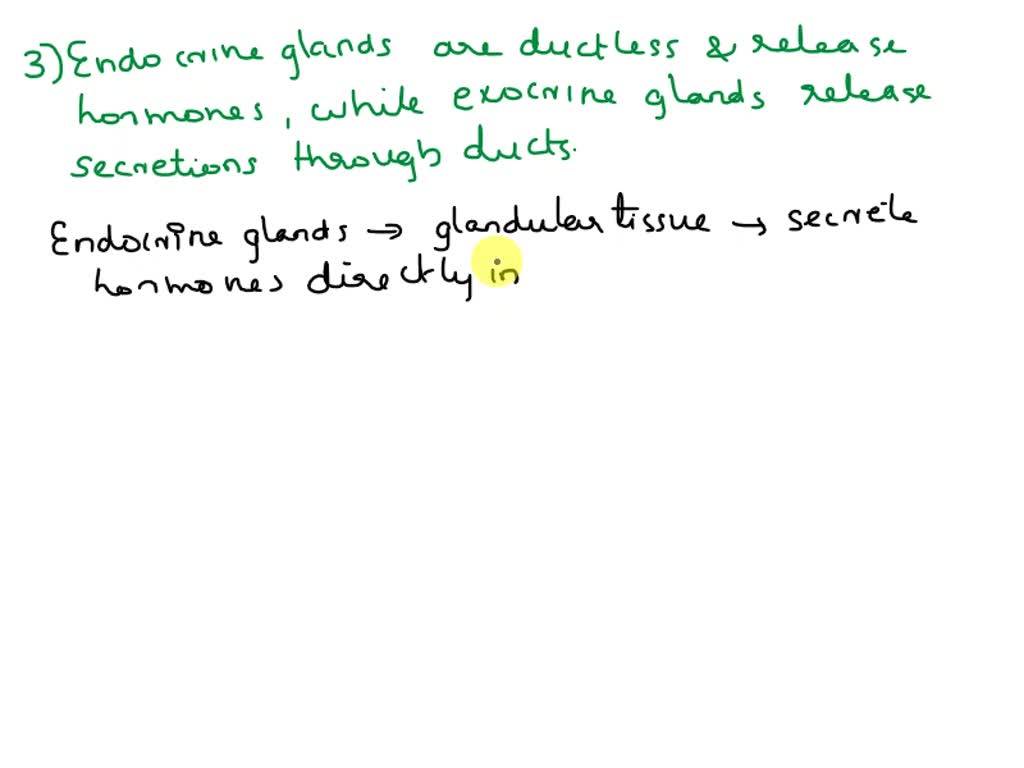 3) Endocrine glands are ductless & release
hormones, while exocrine glands release
secretions through ducts.
Endocrine glands → glandular tissue → secrete
hormones directly in